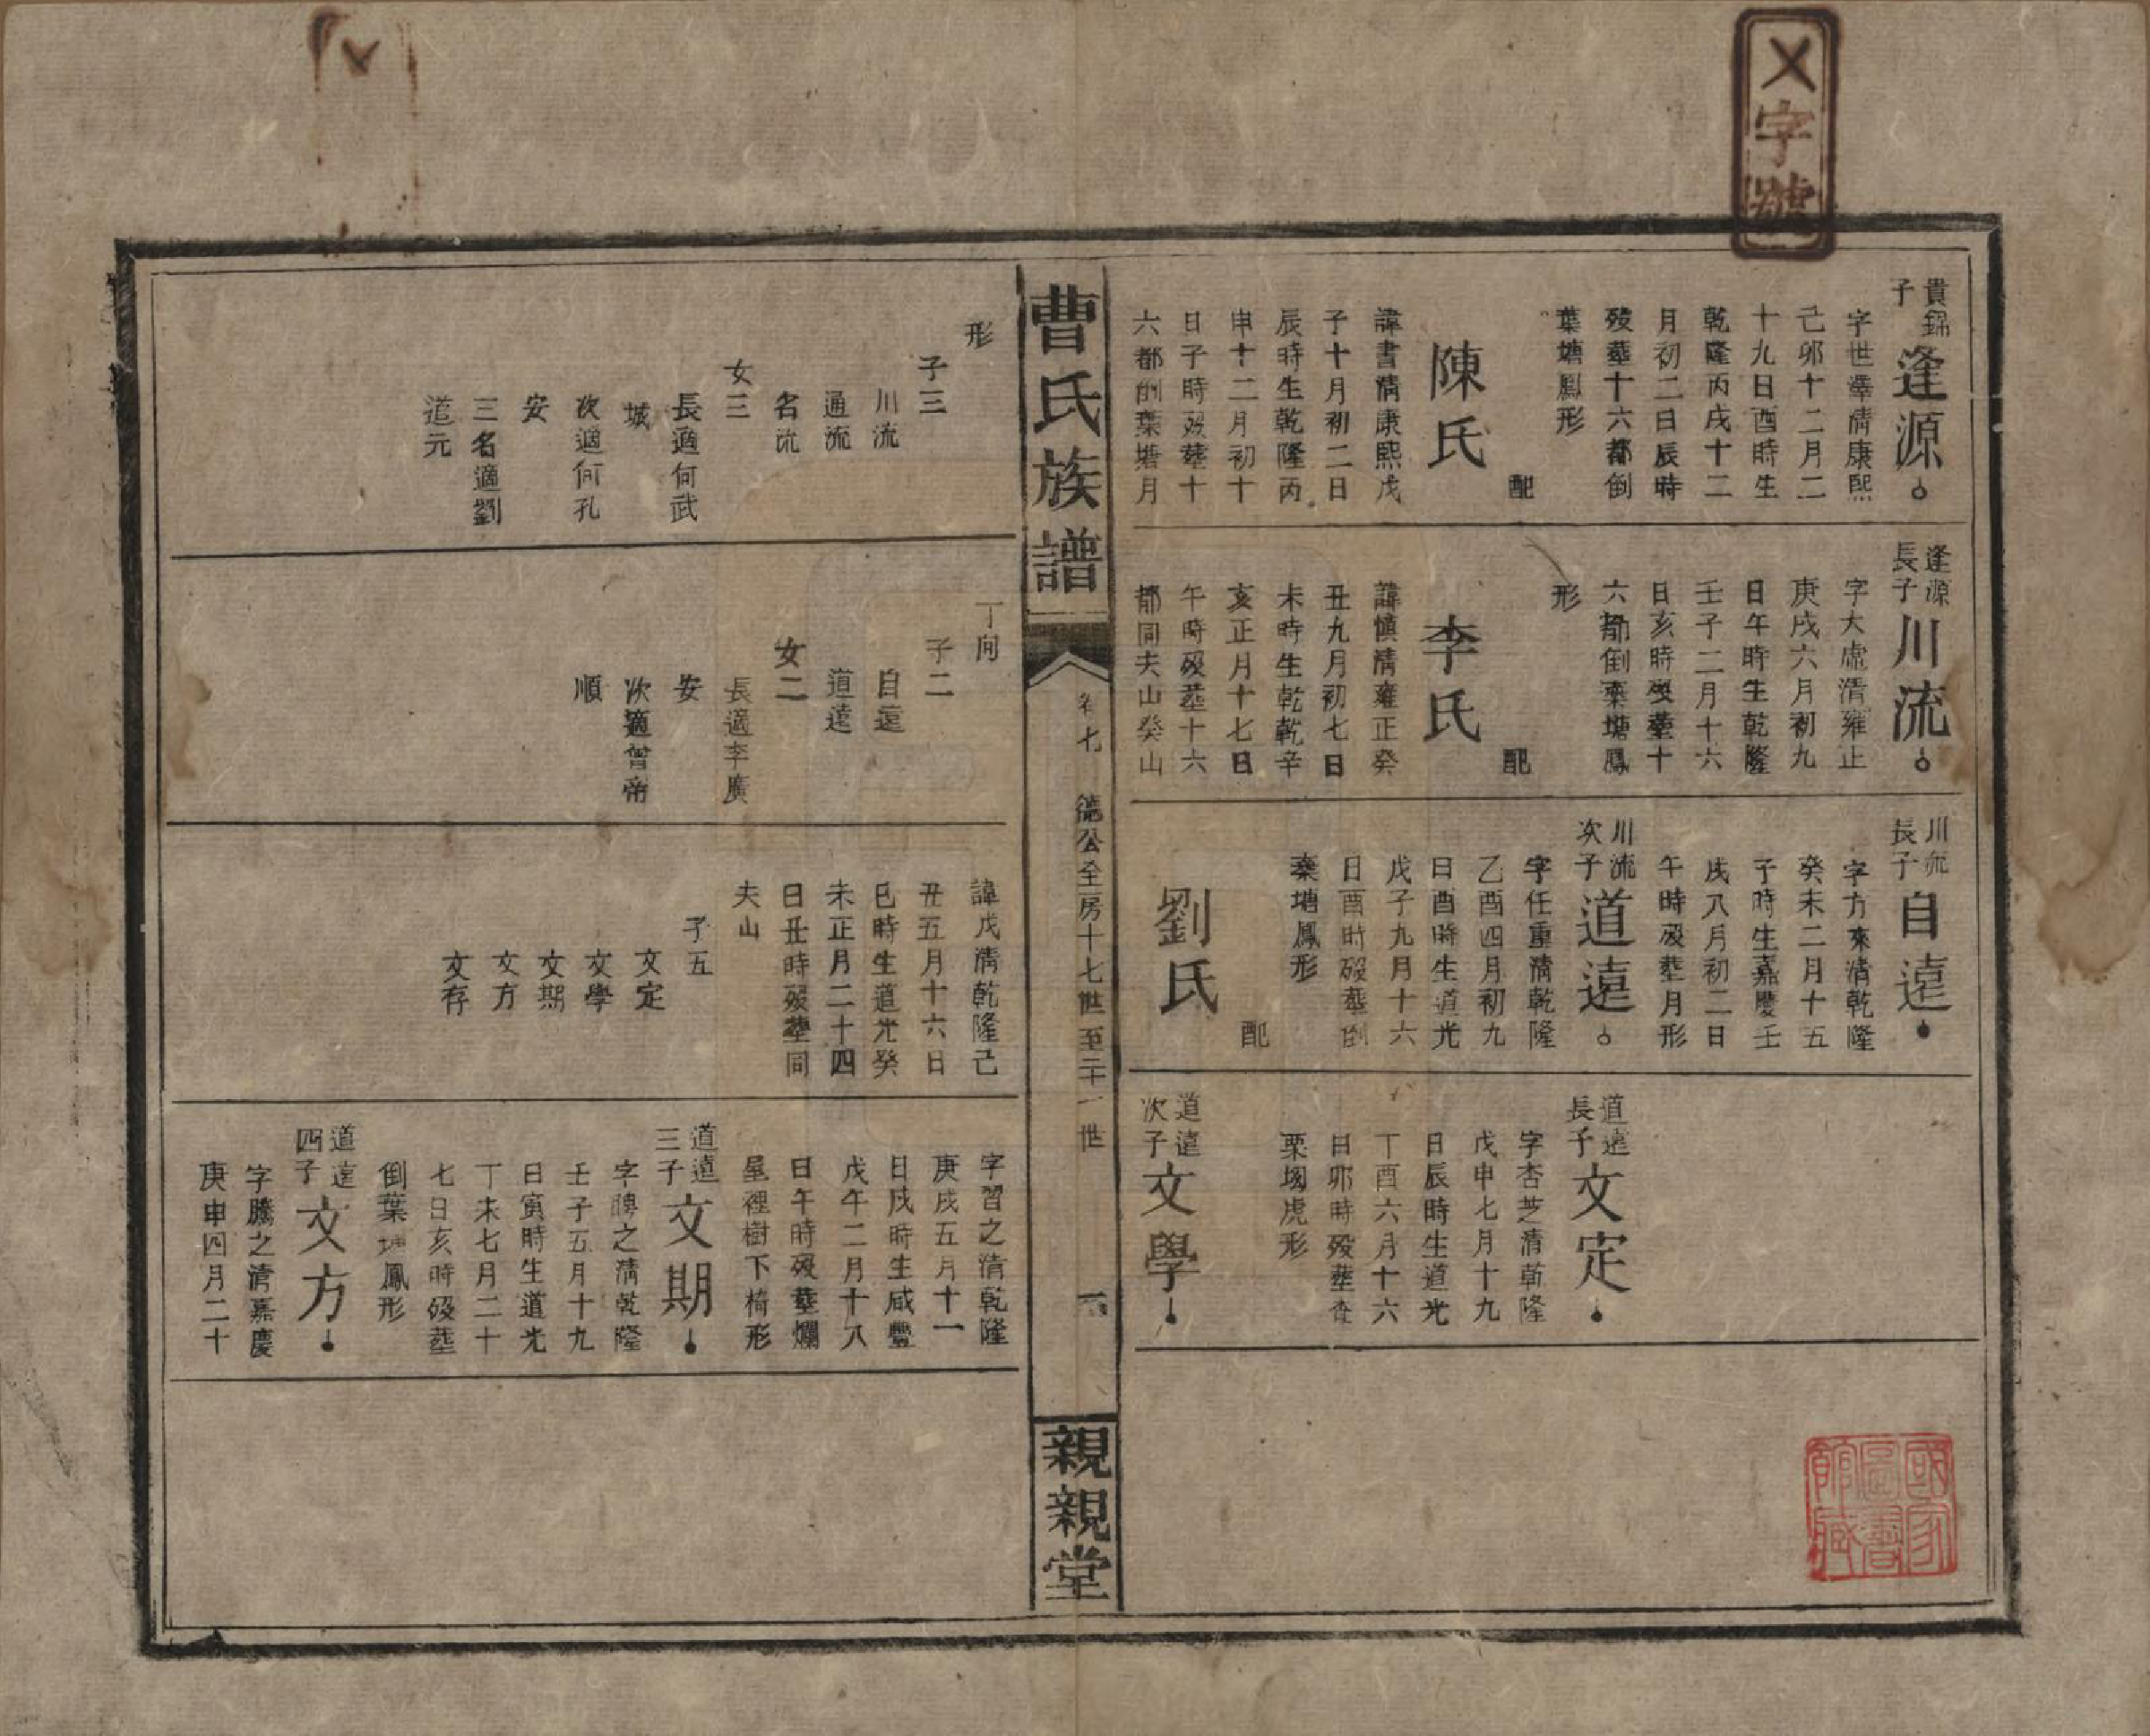 字號
貴錦
子
逢源
字世澤清康熙
己卯十二月二
十九日酉時生
乾隆丙戌十二
月初二日辰時
歿塟十六都倒
葉塘鳳形
配
陳氏
諱書清康熙戊
子十月初二日
辰時生乾隆丙
申十二月初十
日子時歿塟十
六都倒葉塘月
逢源
長子
川流
字大處清雍正
庚戌六月初九
日午時生乾隆
壬子二月十六
日亥時歿塟十
六都倒葉塘鳳
形
配
李氏
諱慎清雍正癸
丑九月初七日
未時生乾乾辛
亥正月十七日
午時歿塟十六
都同夫山癸山
川流
長子
自遠
字方來清乾隆
癸未二月十五
子時生嘉慶壬
戌八月初二日
午時歿塟月形
川流
次子
道遠
字任重清乾隆
乙酉四月初九
日酉時生道光
戊子九月十六
日酉時歿塟倒
葉塘鳳形
配
劉氏
道遠
長子
文定
字杏芝清乾隆
戊申七月十九
日辰時生道光
丁酉六月十六
日卯時歿塟
栗坳虎形
道遠
次子
文學
曹氏族譜
卷七
德公全房十七世至二十一世
親親堂
形
子三
川流
通流
名流
女三
長適何武
城
次適何孔
安
三名適劉
道元
丁向
子二
自遠
道遠
女二
長適李廣
安
次適曾帝
順
諱戊清乾隆己
丑五月十六日
巳時生道光癸
未正月二十四
日丑時歿塟同
夫山
子五
文定
文學
文期
文方
文存
字習之清乾隆
庚戌五月十一
日戌時生咸豐
戊午二月十八
日午時歿塟爛
屋裡樹下椅形
道遠
三子
文期
字聘之清乾隆
壬子五月十九
日寅時生道光
丁未七月二十
七日亥時歿塟
倒葉塘鳳形
道遠
四子
文方
字騰之清嘉慶
庚申四月二十
國家
圖書
館藏